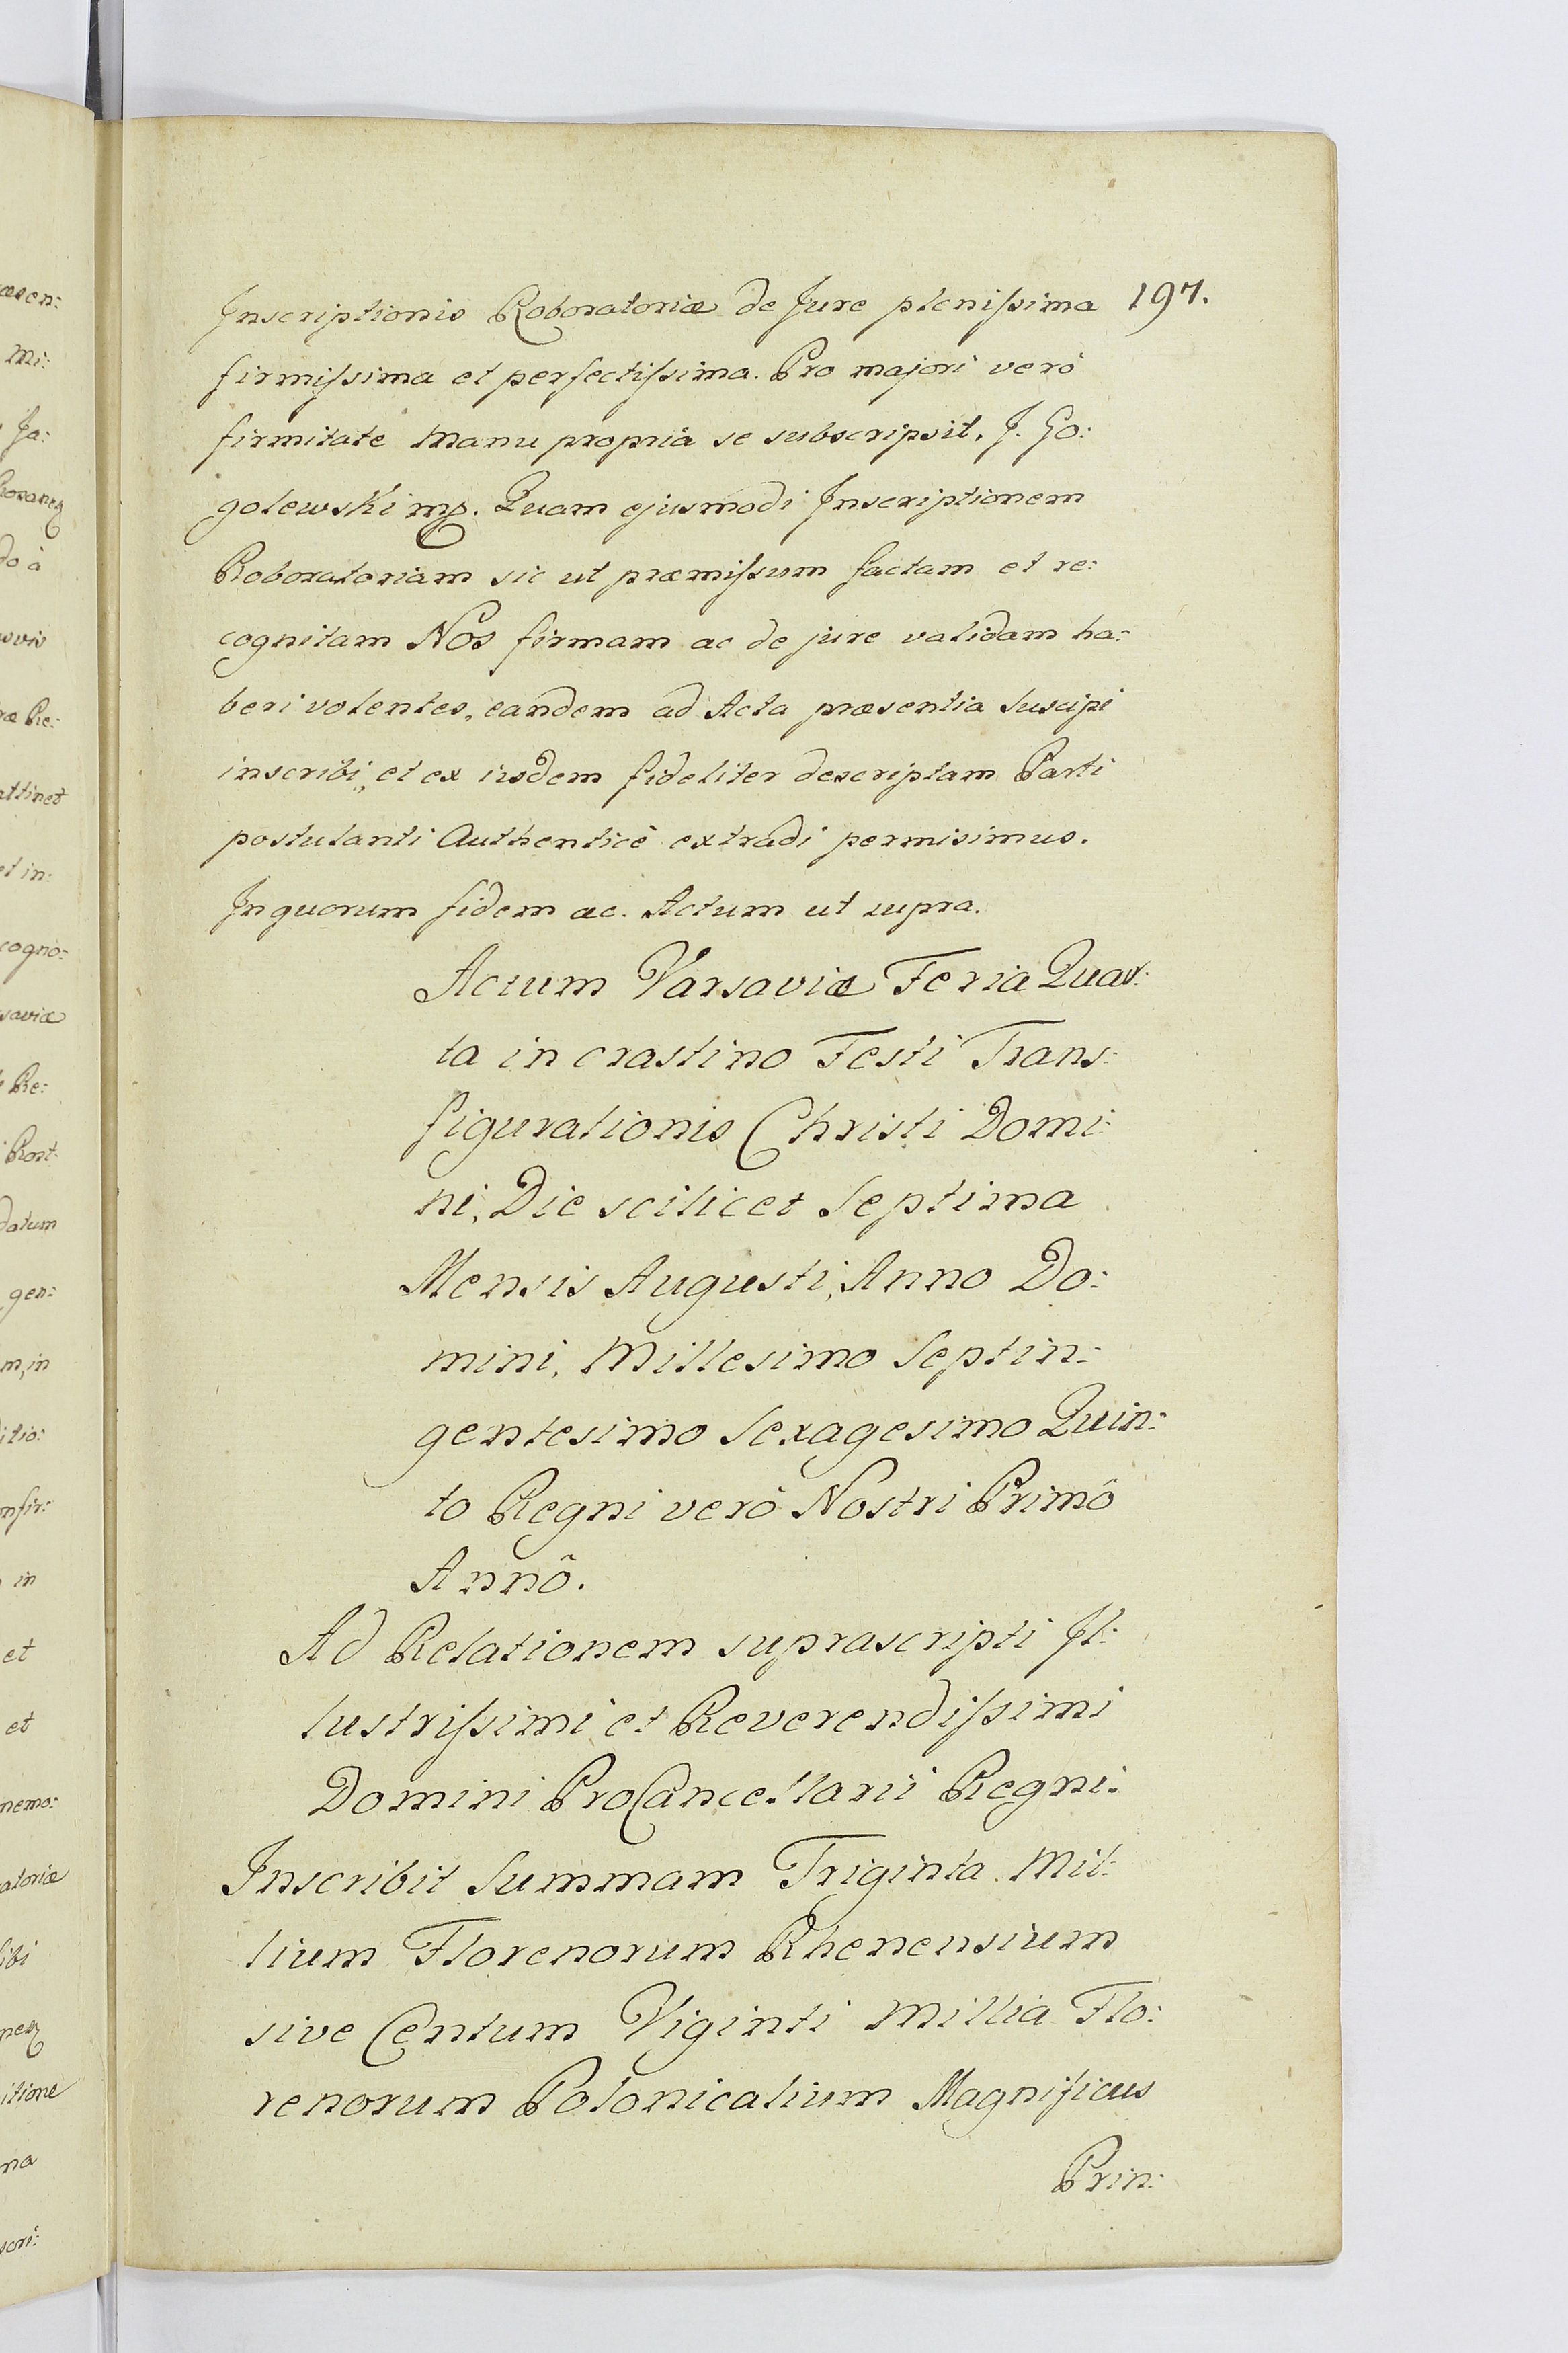 197.
Inscriptionis Roboratoriæ de Jure pleniſsima
firmiſsima et perfectiſsima. Pro majori verò
firmitate manu propriâ se subscripsit. J. Go:
golewski mp. Quam ejusmodi Inscriptionem
Roboratoriam sic ut præmiſsum factam et re:
cognitam Nos firmam ac de jure validam ha:
beri volentes, eandem ad Acta præsentia suscipi
inscribi, et ex iisdem fideliter descriptam Parti
postulanti Authenticè extradi permisimus.
In quorum fidem ac. Actum ut supra.
Actum Varsaviæ Feria Quar:
ta in crastino Festi Trans:
figurationis Christi Domi:
ni, Die scilicet Septima
Mensis Augusti, Anno Do:
mini, Millesimo Septin:
gentesimo Sexagesimo Quin:
to Regni verò Nostri Primô
Annô.
Ad Relationem suprascripti Il:
lustriſsimi et Reverendiſsimi
Domini ProCancellarii Regni.
Inscribit Summam Triginta Mil:
lium Florenorum Rhenensium
sive Centum Viginti Millia Flo:
renorum Polonicalium Magnificus
Prin: